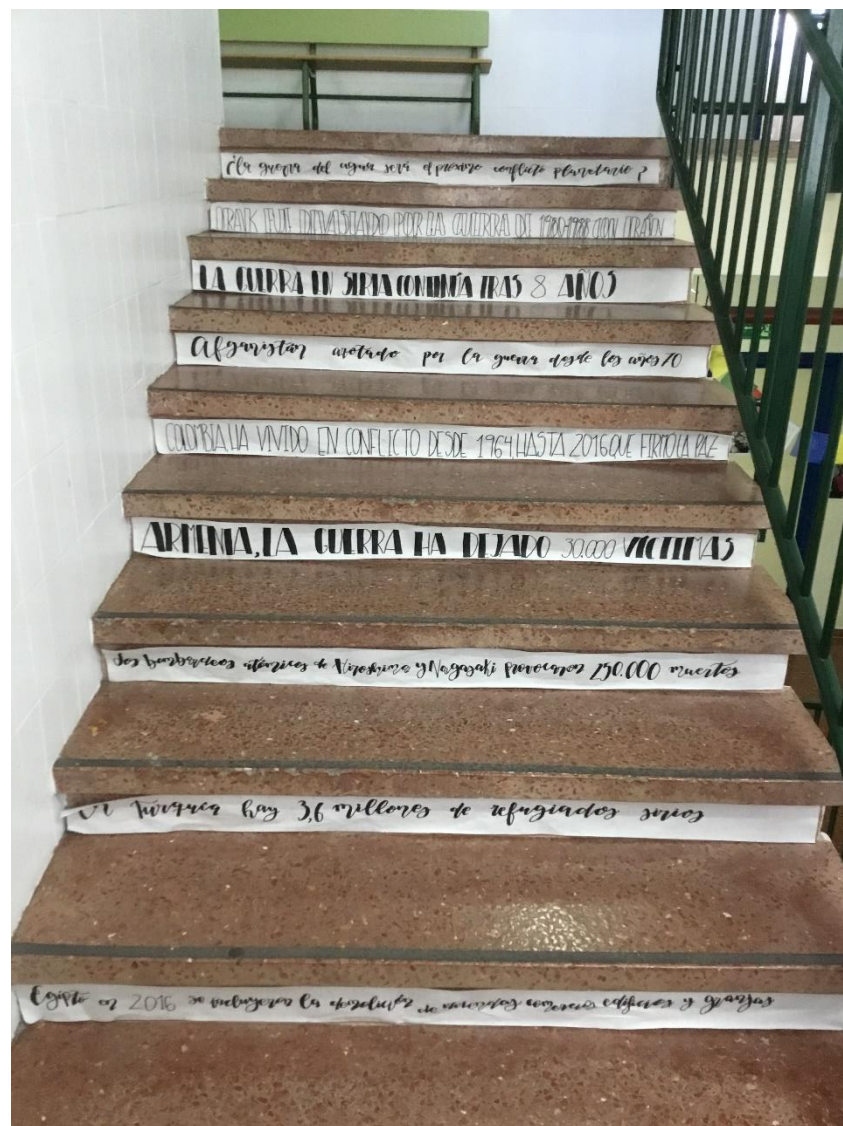 ¿La guerra del agua será el próximo conflicto planetario?
IRAK FUE DEVASTADO POR LA GUERRA DE 1980-1988 CON IRÁN
LA GUERRA EN SIRIA CONTINÚA TRAS 8 AÑOS
Afganistán azotado por la guerra desde los años 70
COLOMBIA HA VIVIDO EN CONFLICTO DESDE 1964, HASTA 2016 QUE FIRMÓ LA PAZ
ARMENIA, LA GUERRA HA DEJADO 30.000 VICTIMAS
Los bombardeos atómicos de Hiroshima y Nagasaki provocaron 250.000 muertos
En Turquía hay 3,6 millones de refugiados sirios
Egipto en 2016 se incluyeron la demolición de viviendas comercios edificios y granjas